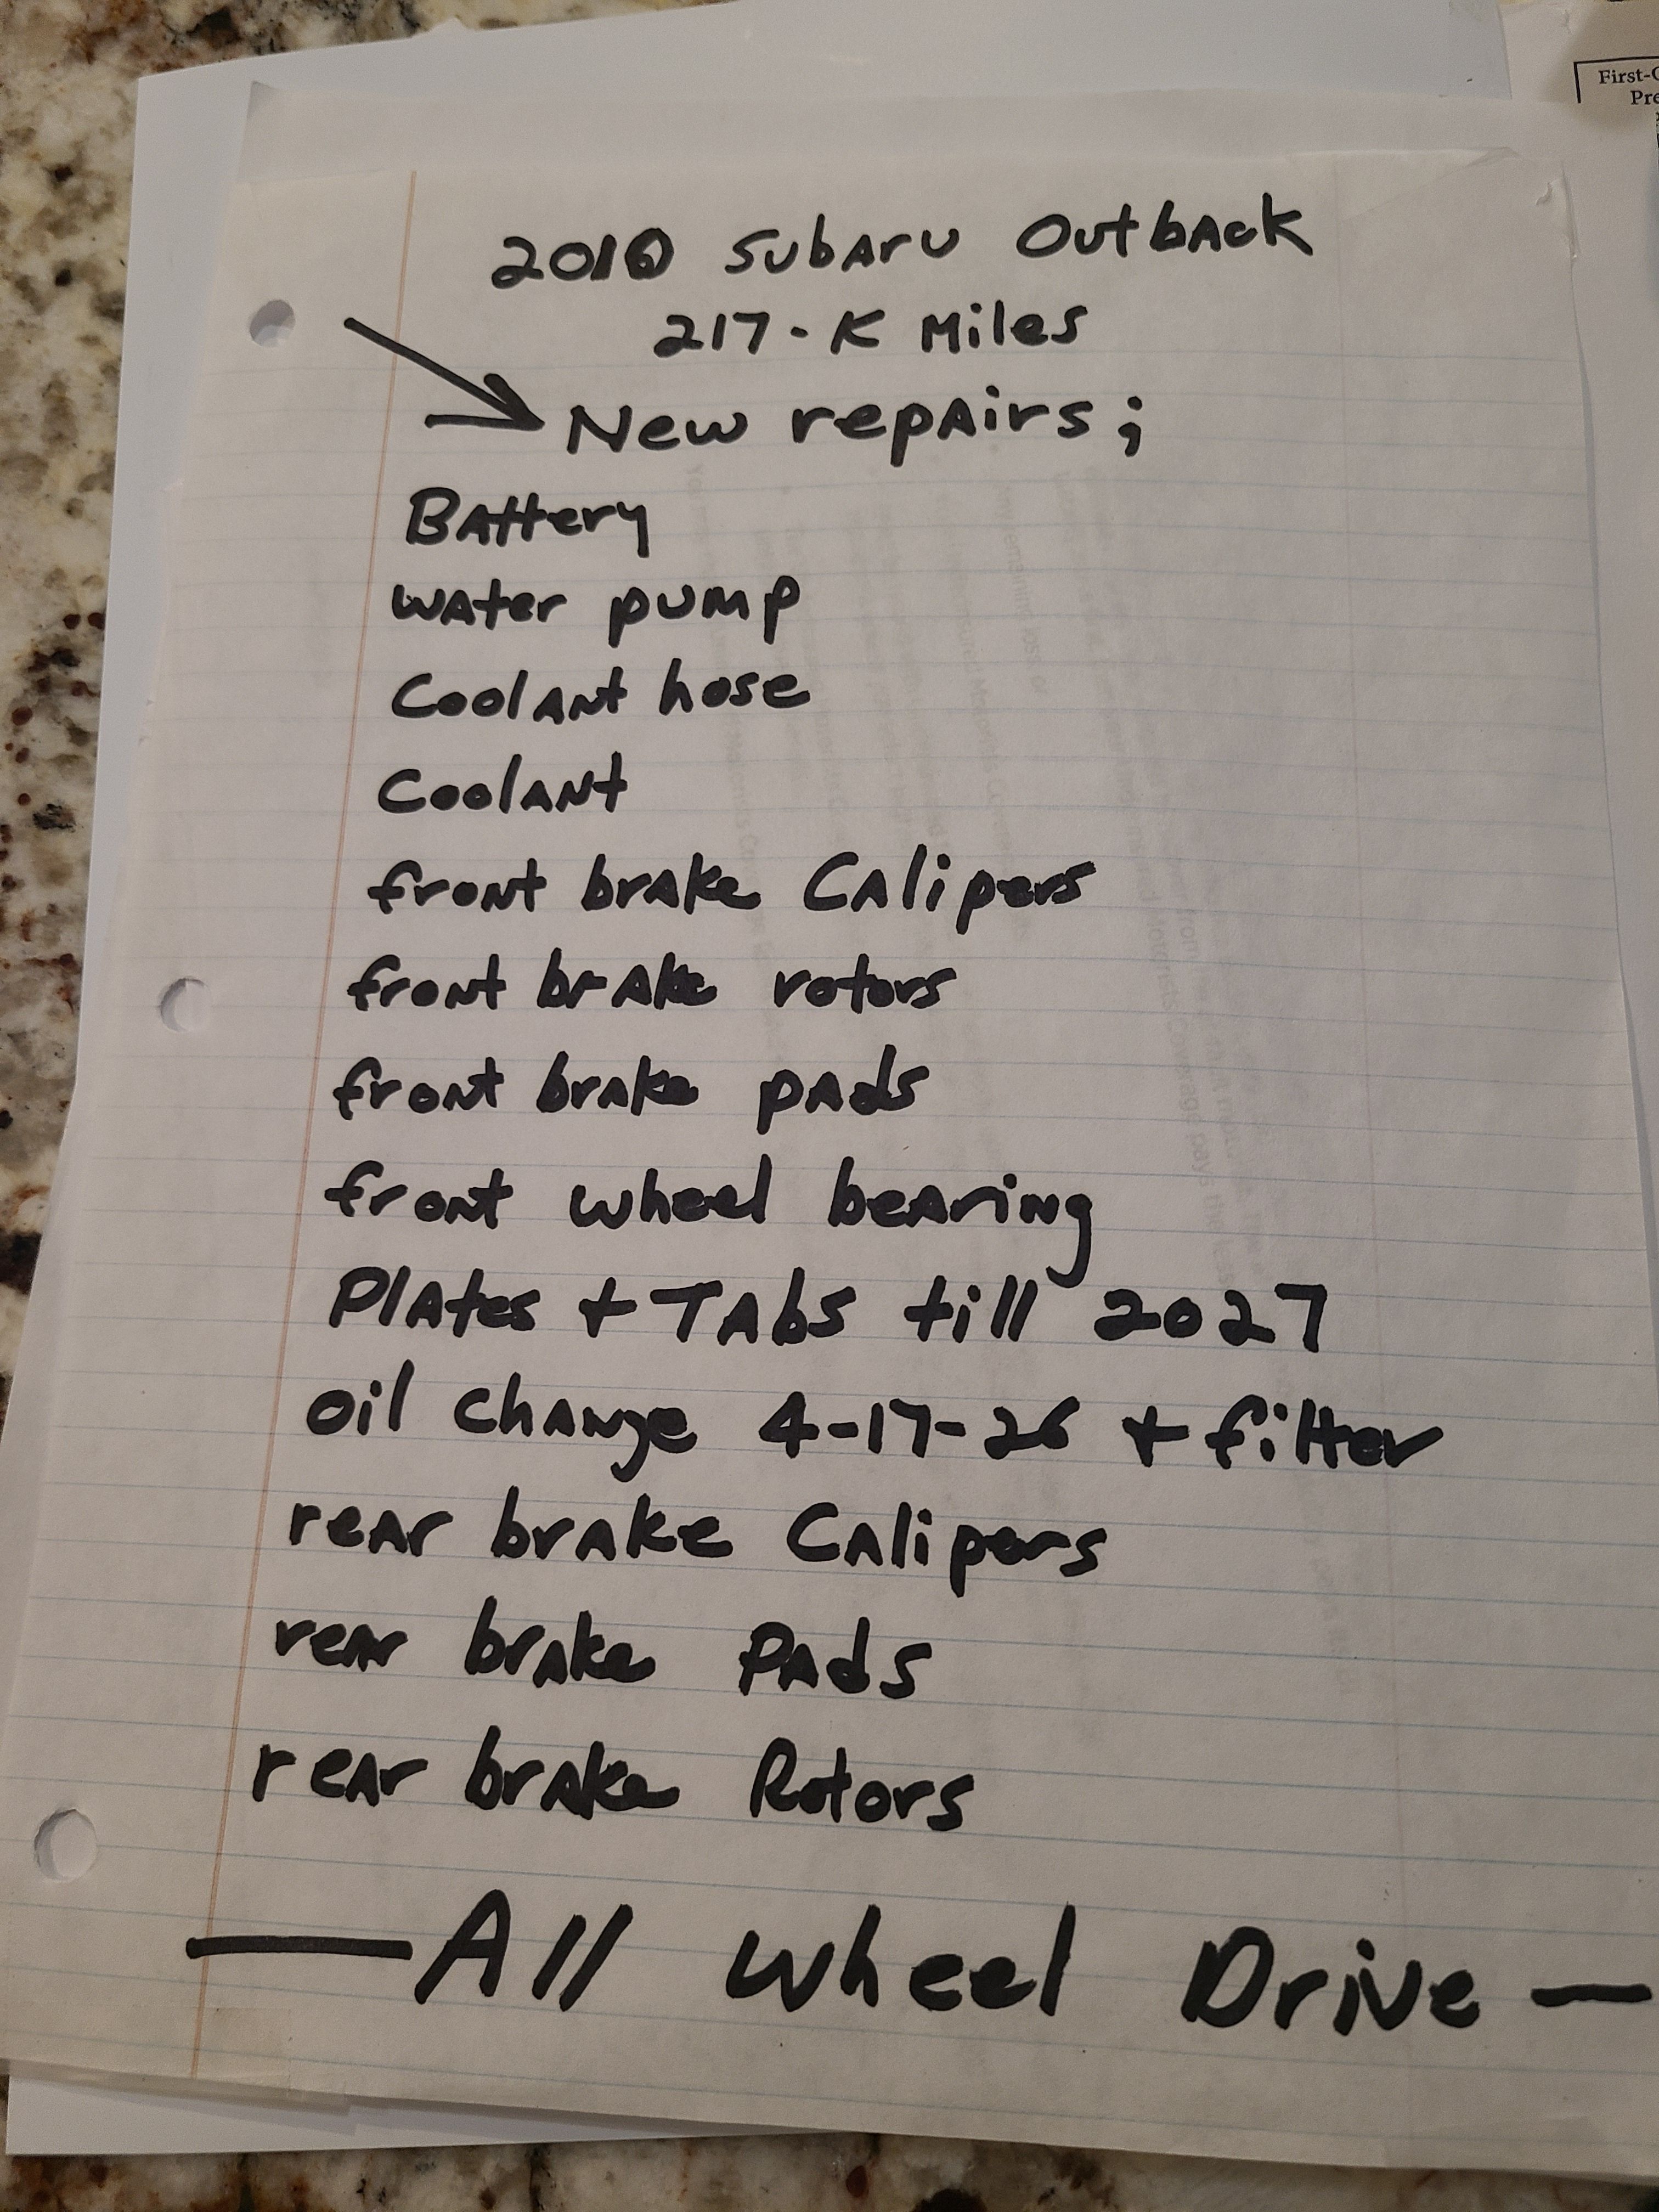 First-C
Pre
2010 Subaru Outback
217-K Miles
New repairs;
Battery
water pump
Coolant hose
Coolant
front brake Calipers
front brake rotors
front brake pads
front wheel bearing
Plates + TAbs till 2027
oil change 4-17-26 + filter
rear brake Calipers
rear brake Pads
rear brake Rotors
—All wheel Drive—